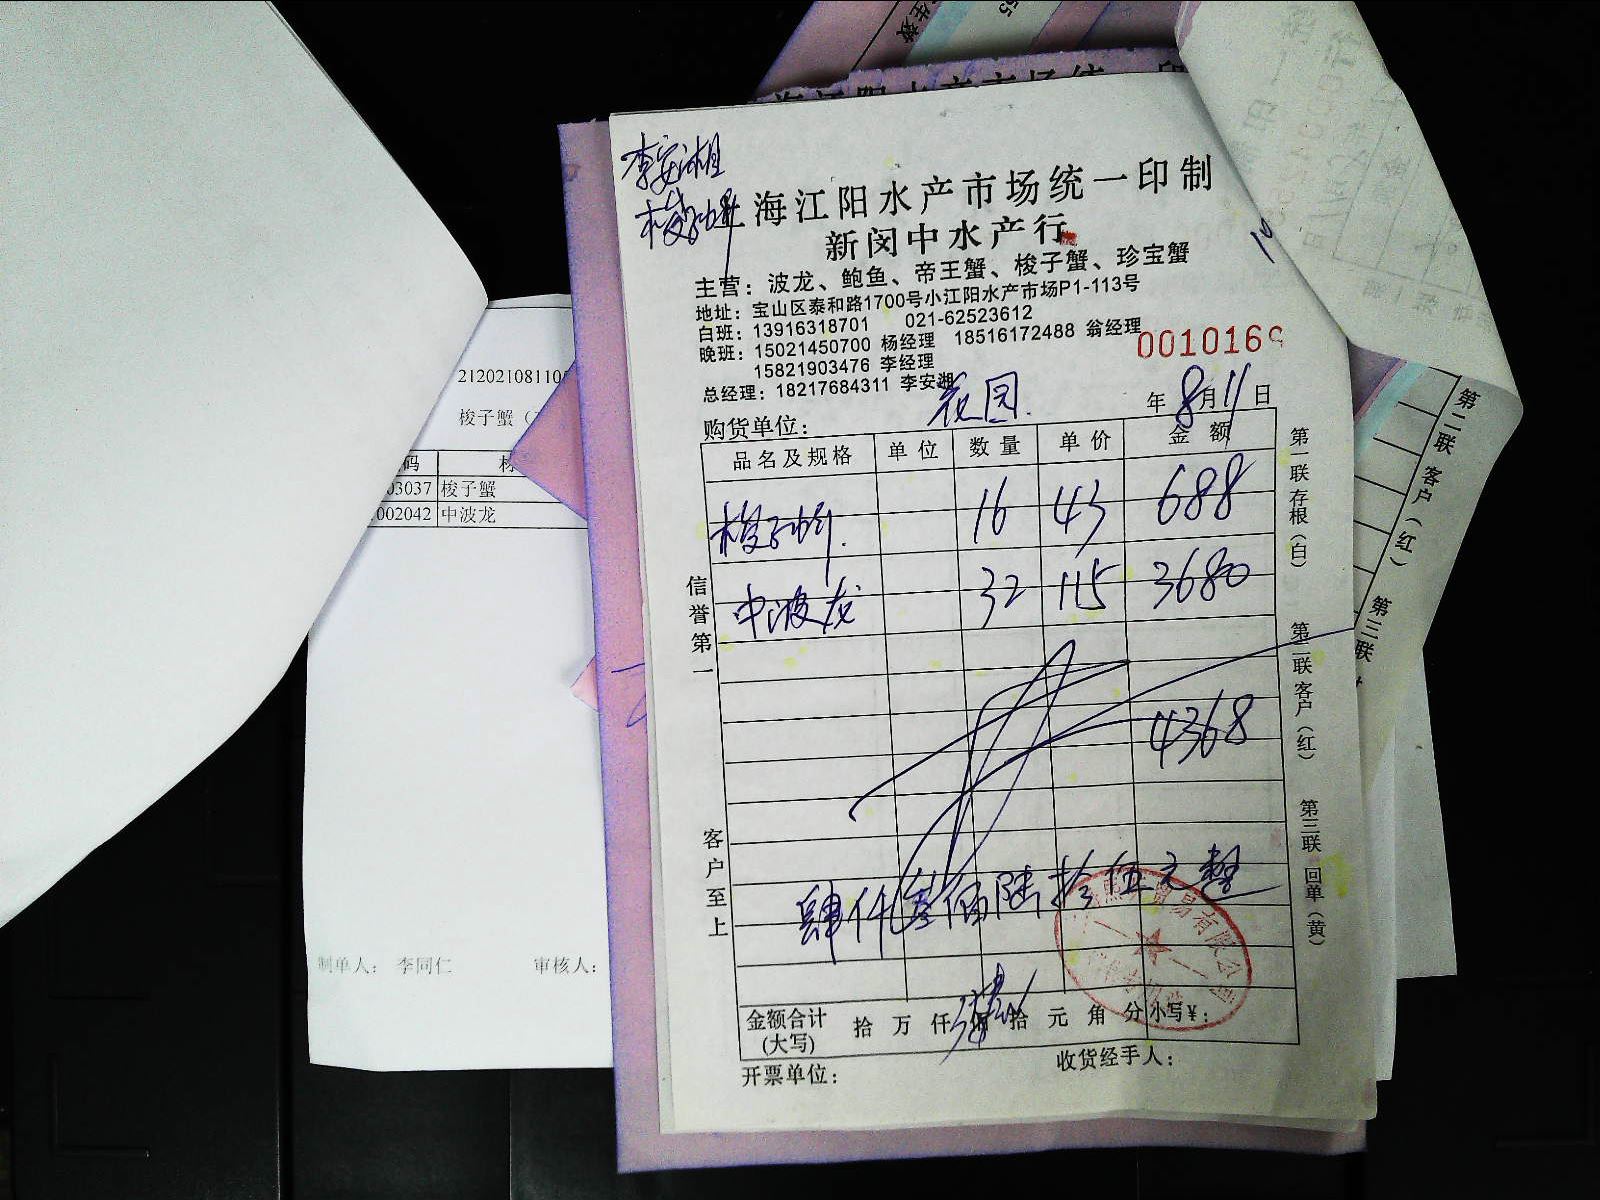 李安湘
梭子蟹
上海江阳水产市场统一印制
新闵中水产行
主营：波龙、鲍鱼、帝王蟹、梭子蟹、珍宝蟹
地址：宝山区泰和路1700号小江阳水产市场P1-113号
白班：13916318701 021-62523612
晚班：15021450700 杨经理 18516172488 翁经理
15821903476 李经理
总经理：18217684311 李安湘
0010169
购货单位：花园 年8月11日
品名及规格 单位 数量 单价 金额
梭子蟹 16 43 688
中波龙 32 115 3680
4368
肆仟叁佰陆拾伍元整
金额合计(大写) 拾 万 仟 佰 拾 元 角 分 小写¥：
开票单位： 收货经手人：
信誉第一
客户至上
第一联 存根（白）
第二联 客户（红）
第三联 回单（黄）
贸易有限公司
212021081105
梭子蟹（
码
03037 梭子蟹
002042 中波龙
制单人： 李同仁 审核人：
第二联 客户（红）
第三联